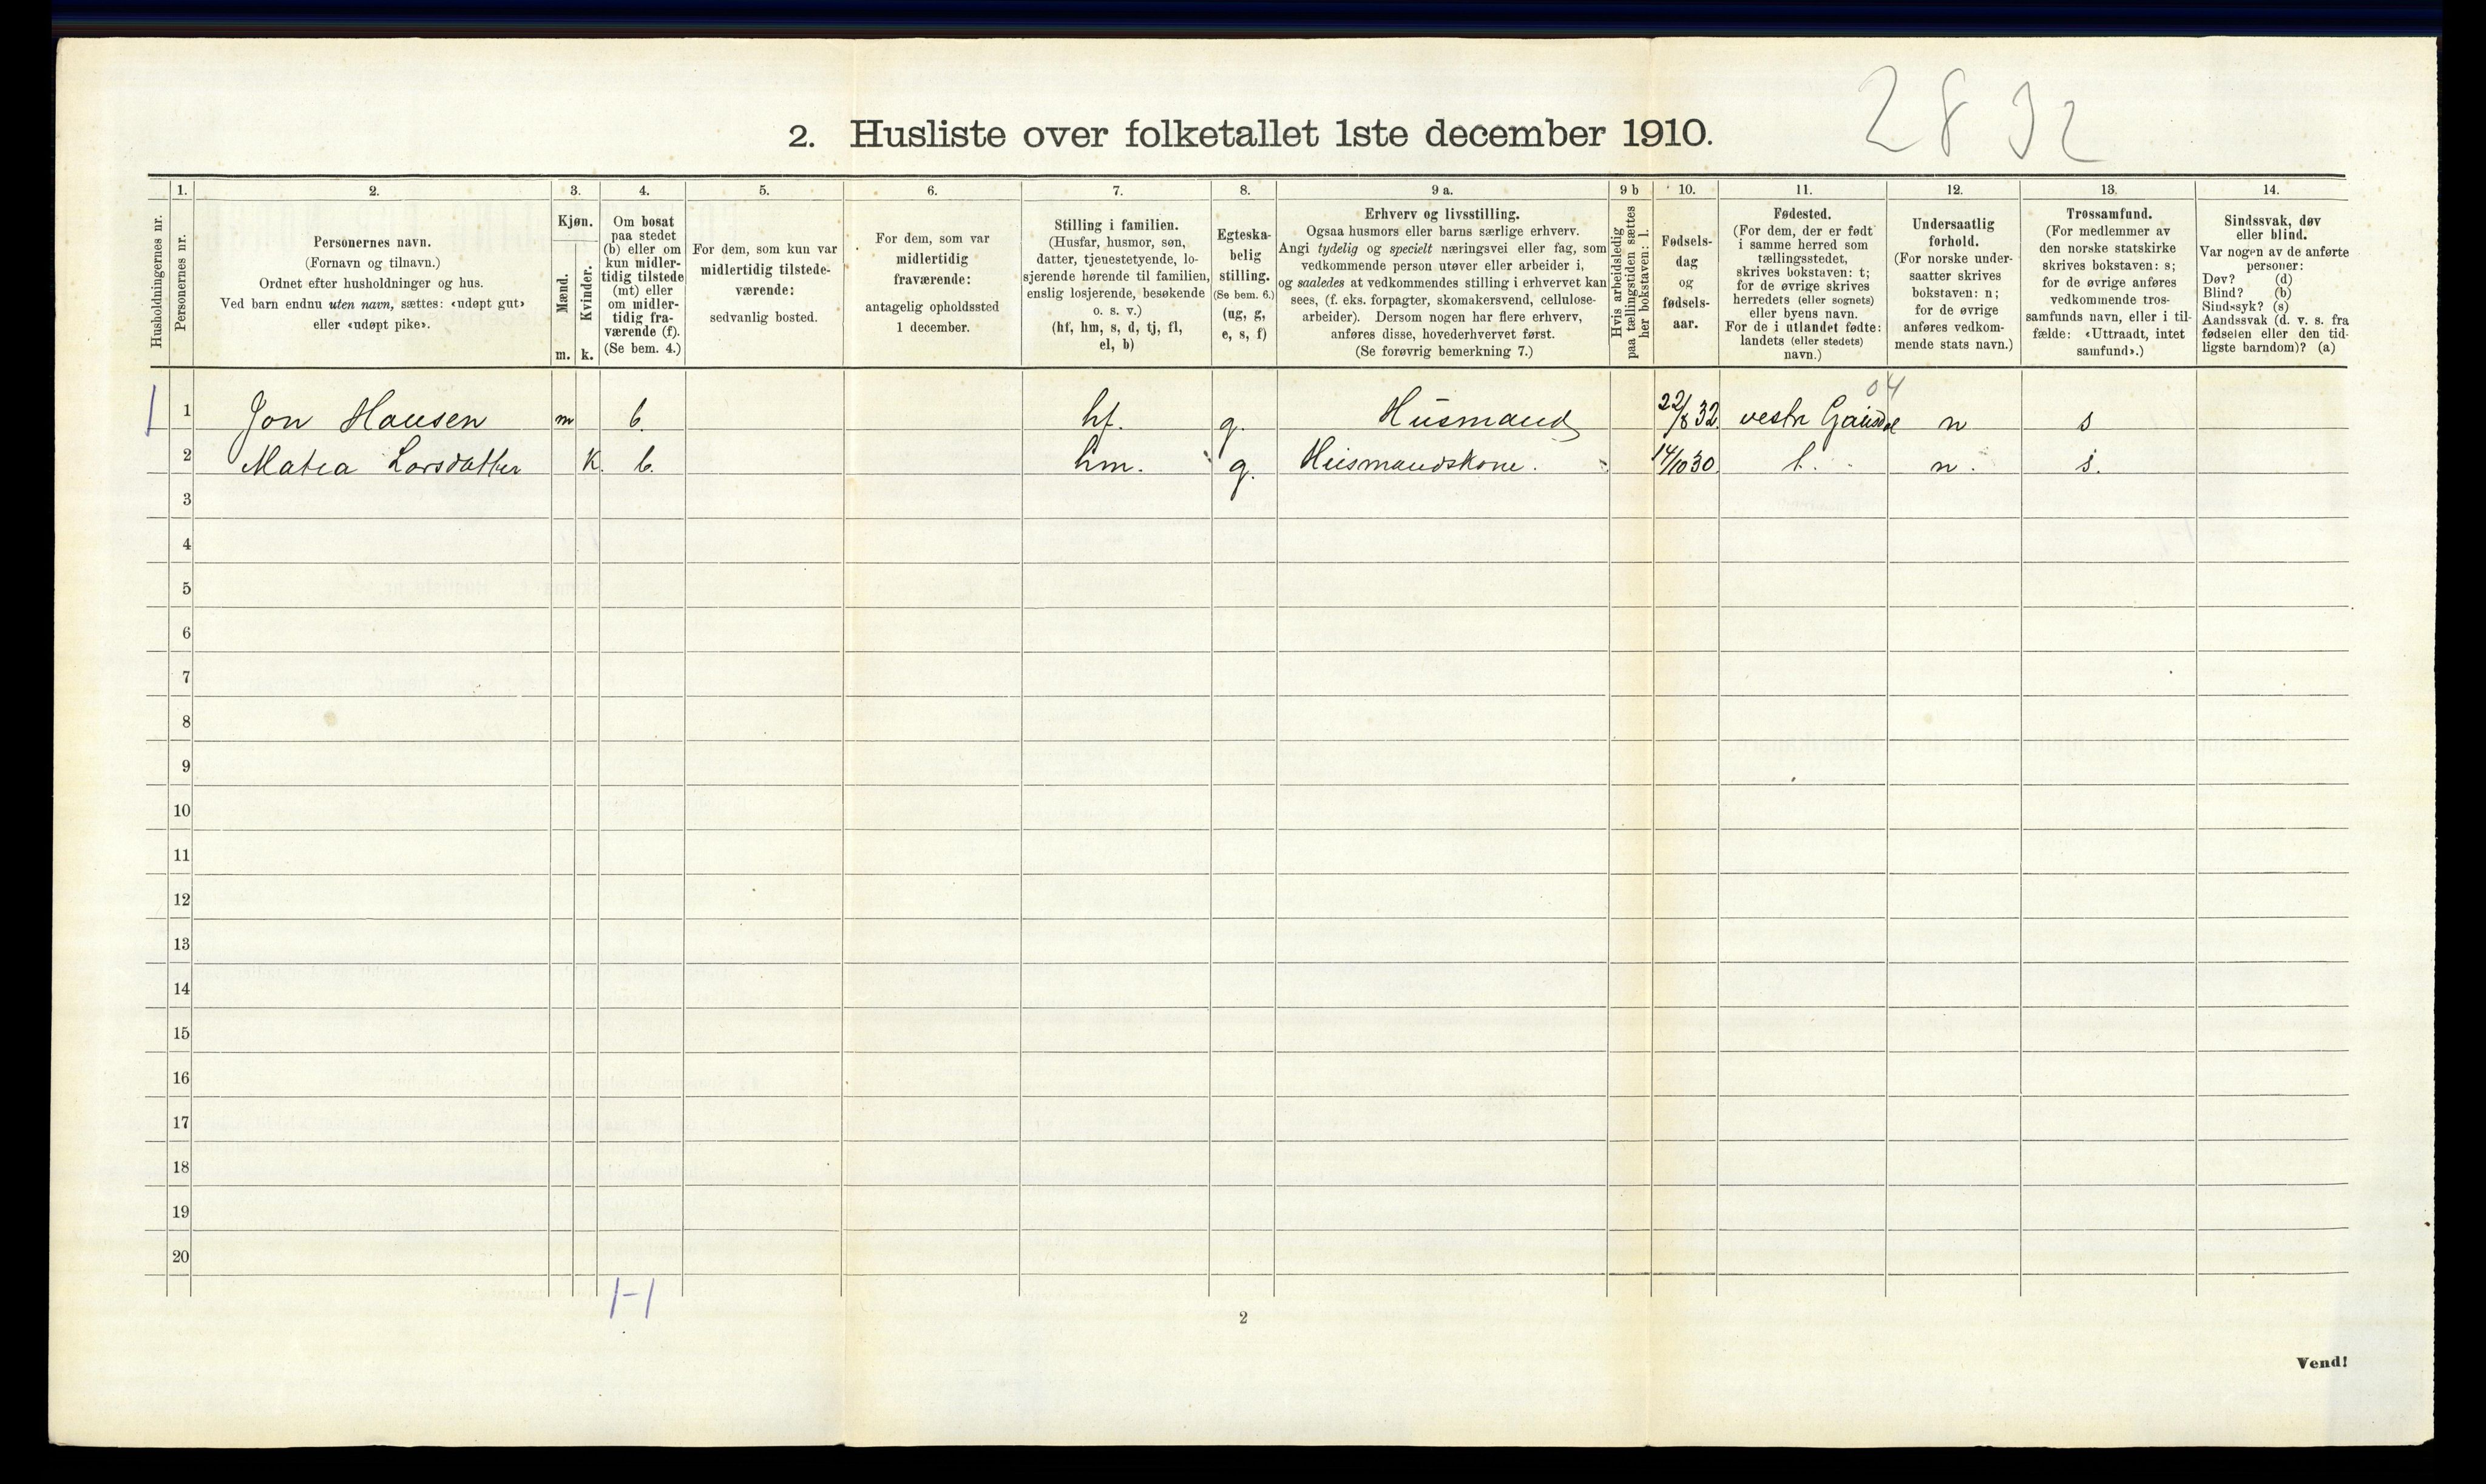 2832
2. Husliste over folketallet 1ste december 1910.
Husholdningernes nr.
1.
Personernes nr.
2.
Personernes navn.
(Fornavn og tilnavn.)
Ordnet efter husholdninger og hus.
Ved barn endnu uten navn, sættes: «udøpt gut»
eller «udøpt pike».
3.
Kjøn.
Mænd.
m.
Kvinder.
k.
4.
Om bosat
paa stedet
(b) eller om
kun midler-
tidig tilstede
(mt) eller
om midler-
tidig fra-
værende (f).
(Se bem. 4.)
5.
For dem, som kun var
midlertidig tilstede-
værende:
sedvanlig bosted.
6.
For dem, som var
midlertidig
fraværende:
antagelig opholdssted
1 december.
7.
Stilling i familien.
(Husfar, husmor, søn,
datter, tjenestetyende, lo-
sjerende hørende til familien,
enslig losjerende, besøkende
o. s. v.)
(hf, hm, s, d, tj, fl,
el, b)
8.
Egteska-
belig
stilling.
(Se bem. 6.)
(ug, g,
e, s, f)
9 a.
Erhverv og livsstilling.
Ogsaa husmors eller barns særlige erhverv.
Angi tydelig og specielt næringsvei eller fag, som
vedkommende person utøver eller arbeider i,
og saaledes at vedkommendes stilling i erhvervet kan
sees, (f. eks. forpagter, skomakersvend, cellulose-
arbeider). Dersom nogen har flere erhverv,
anføres disse, hovederhvervet først.
(Se forøvrig bemerkning 7.)
9 b
Hvis arbeidsledig
paa tællingstiden sættes
her bokstaven: l.
10.
Fødsels-
dag
og
fødsels-
aar.
11.
Fødested.
(For dem, der er født
i samme herred som
tællingsstedet,
skrives bokstaven: t;
for de øvrige skrives
herredets (eller sognets)
eller byens navn.
For de i utlandet fødte:
landets (eller stedets)
navn.)
12.
Undersaatlig
forhold.
(For norske under-
saatter skrives
bokstaven: n;
for de øvrige
anføres vedkom-
mende stats navn.)
13.
Trossamfund.
(For medlemmer av
den norske statskirke
skrives bokstaven: s;
for de øvrige anføres
vedkommende tros-
samfunds navn, eller i til-
fælde: «Uttraadt, intet
samfund».)
14.
Sindssvak, døv
eller blind.
Var nogen av de anførte
personer:
Døv? (d)
Blind? (b)
Sindssyk? (s)
Aandssvak (d. v. s. fra
fødselen eller den tid-
ligste barndom)? (a)
04
1 1 Jon Hansen m b. hf. g. Husmand 22/8 32. vestr Gausdal n s
2 Matea Larsdatter k. b. hm. g. Husmandskone. 14/10 30. t. n. s.
3
4
5
6
7
8
9
10
11
12
13
14
15
16
17
18
19
20
1-1
2
Vend!